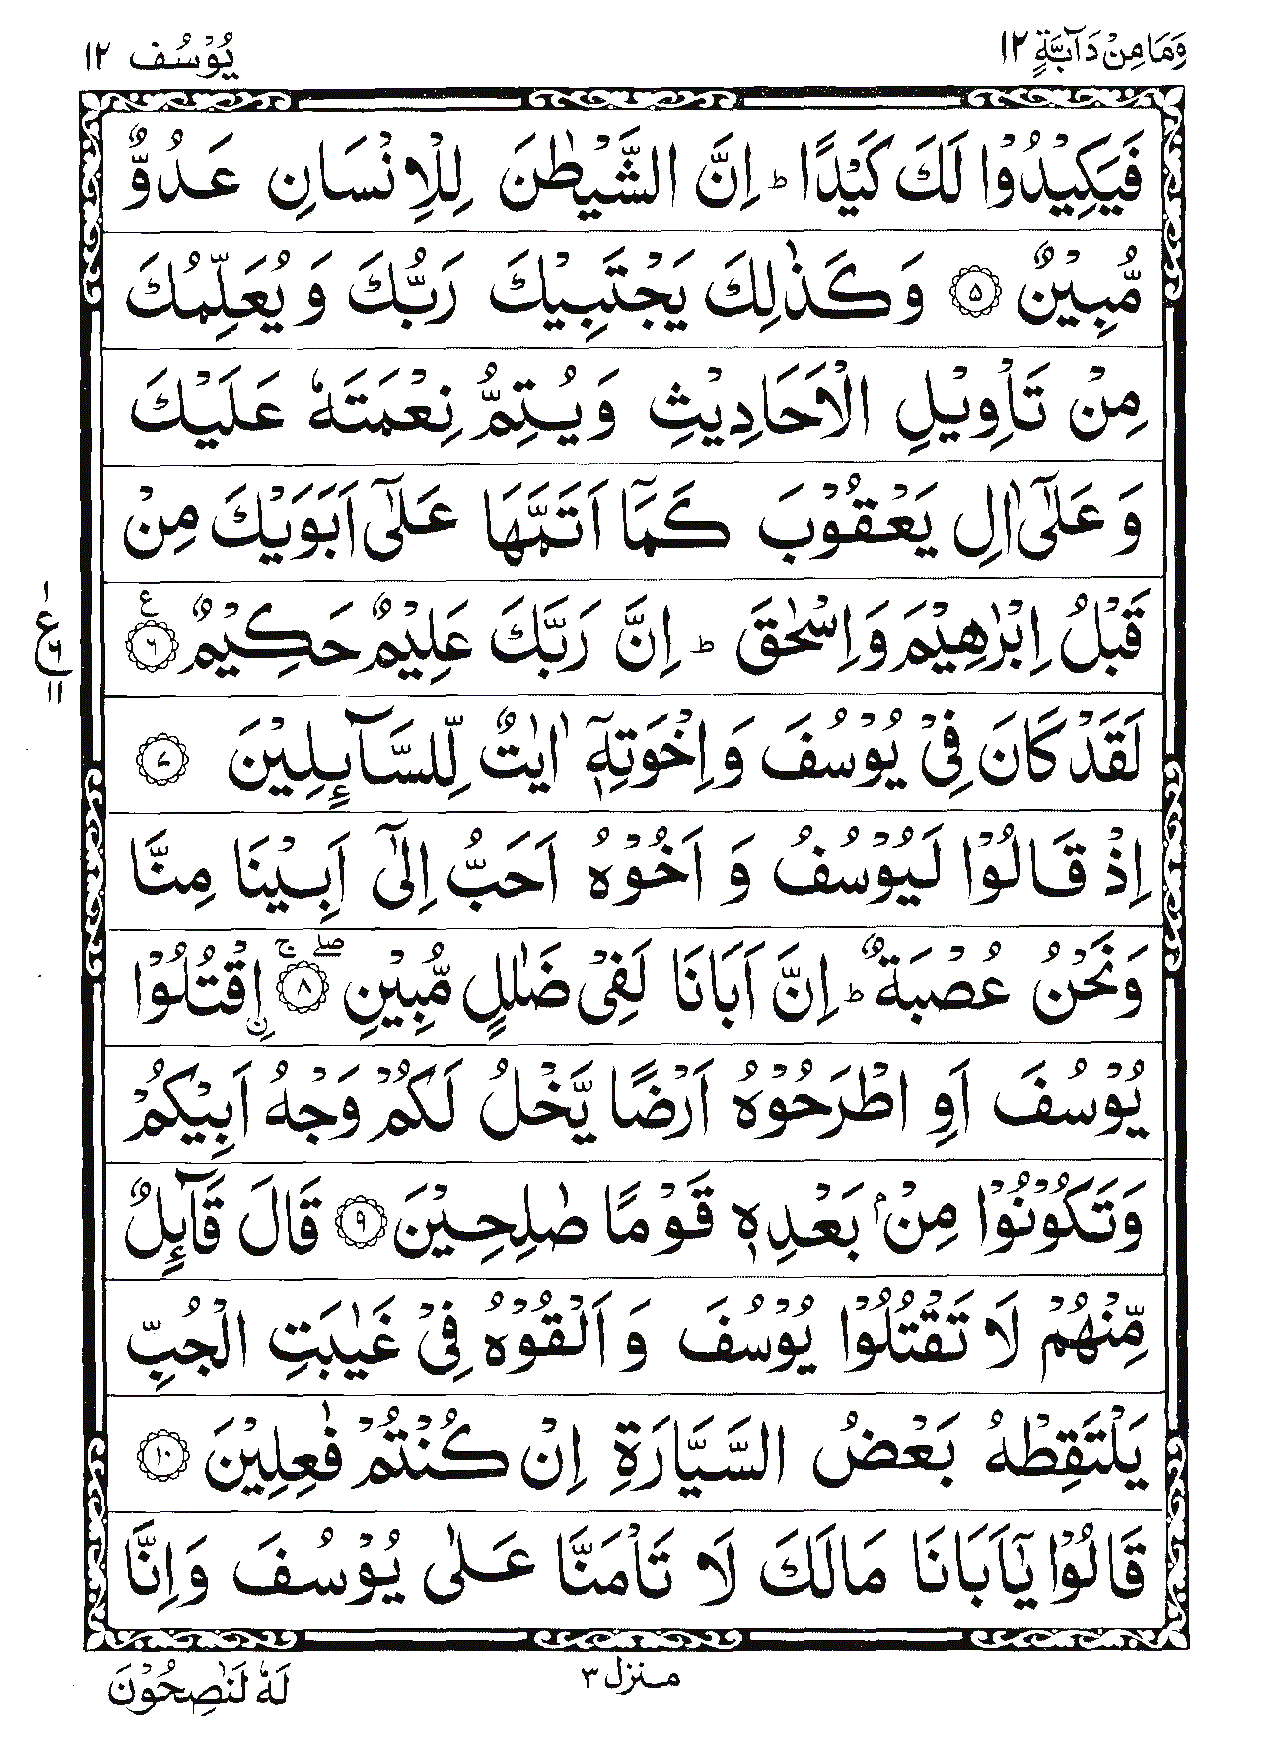 وَمَا مِنْ دَآبَّةٍ ١٢
يُوْسُف ١٢
فَيَكِيْدُوْا لَكَ كَيْدًا ؕ اِنَّ الشَّيْطٰنَ لِلْاِنْسَانِ عَدُوٌّ
مُّبِيْنٌ ۝۵ وَ كَذٰلِكَ يَجْتَبِيْكَ رَبُّكَ وَ يُعَلِّمُكَ
مِنْ تَاْوِيْلِ الْاَحَادِيْثِ وَ يُتِمُّ نِعْمَتَهٗ عَلَيْكَ
وَ عَلٰۤى اٰلِ يَعْقُوْبَ كَمَاۤ اَتَمَّهَا عَلٰۤى اَبَوَيْكَ مِنْ
قَبْلُ اِبْرٰهِيْمَ وَ اِسْحٰقَ ؕ اِنَّ رَبَّكَ عَلِيْمٌ حَكِيْمٌ ۝۶ ع
١
ع
۶
١١
لَقَدْ كَانَ فِيْ يُوْسُفَ وَ اِخْوَتِهٖۤ اٰيٰتٌ لِّلسَّآئِلِيْنَ ۝۷
اِذْ قَالُوْا لَيُوْسُفُ وَ اَخُوْهُ اَحَبُّ اِلٰۤى اَبِيْنَا مِنَّا
وَ نَحْنُ عُصْبَةٌ ؕ اِنَّ اَبَانَا لَفِيْ ضَلٰلٍ مُّبِيْنِ ۝۸ ۖۚ اِ۟قْتُلُوْا
يُوْسُفَ اَوِ اطْرَحُوْهُ اَرْضًا يَّخْلُ لَكُمْ وَجْهُ اَبِيْكُمْ
وَ تَكُوْنُوْا مِنْۢ بَعْدِهٖ قَوْمًا صٰلِحِيْنَ ۝۹ قَالَ قَآئِلٌ
مِّنْهُمْ لَا تَقْتُلُوْا يُوْسُفَ وَ اَلْقُوْهُ فِيْ غَيٰبَتِ الْجُبِّ
يَلْتَقِطْهُ بَعْضُ السَّيَّارَةِ اِنْ كُنْتُمْ فٰعِلِيْنَ ۝۱۰
قَالُوْا يٰۤاَبَانَا مَالَكَ لَا تَاْمَنَّا عَلٰى يُوْسُفَ وَ اِنَّا
منزل ٣
لَهٗ لَنٰصِحُوْنَ